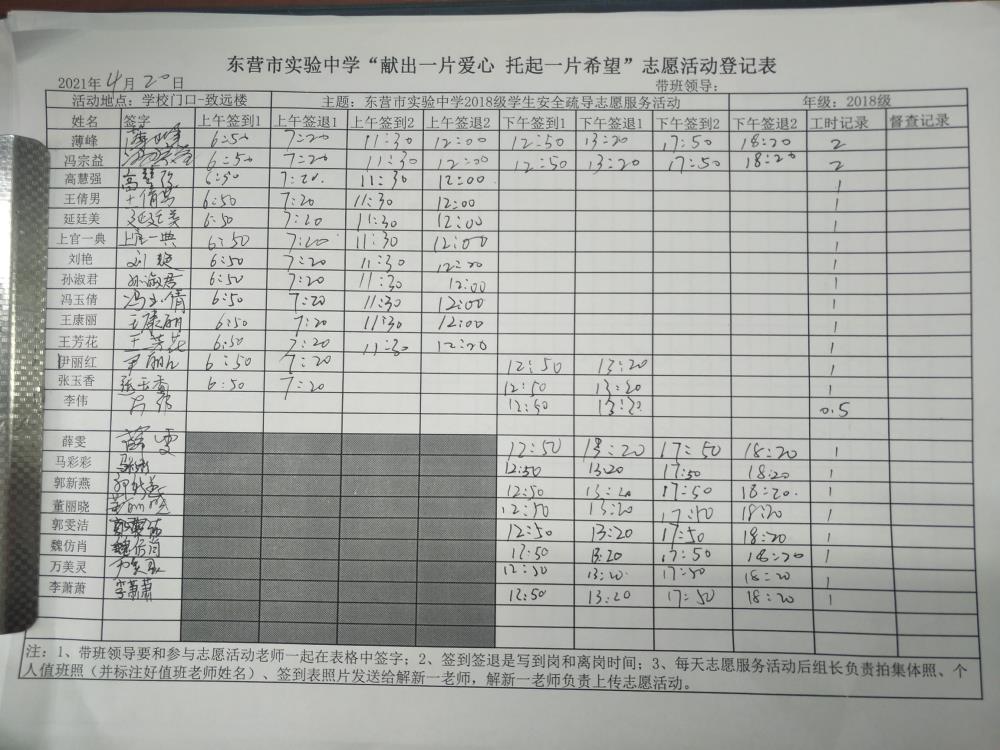 东营市实验中学“献出一片爱心 托起一片希望”志愿活动登记表
2021年4月20日 带班领导：
活动地点：学校门口-致远楼 主题：东营市实验中学2018级学生安全疏导志愿服务活动 年级：2018级
姓名 签字 上午签到1 上午签退1 上午签到2 上午签退2 下午签到1 下午签退1 下午签到2 下午签退2 工时记录 督查记录
薄峰 薄峰 6:50 7:20 11:30 12:00 12:50 13:20 17:50 18:20 2
冯宗益 冯宗益 6:50 7:20 11:30 12:00 12:50 13:20 17:50 18:20 2
高慧强 高慧强 6:50 7:20. 11:30 12:00 1
王倩男 王倩男 6:50 7:20 11:30 12:00 1
延廷美 延廷美 6:50 7:20 11:30 12:00 1
上官一典 上官一典 6:50 7:20 11:30 12:00 1
刘艳 刘艳 6:50 7:20 11:30 1
孙淑君 孙淑君 6:50 7:20 11:30 12:00 1
冯玉倩 冯玉倩 6:50 7:20 11:30 12:00 1
王康丽 王康丽 6:50 7:20 11:30 12:00 1
王芳花 王芳花 6:50 7:20 11:30 12:20 1
伊丽红 6:50 7:20 12:50 13:20 1
张玉香 张玉香 6:50 7:20 12:50 13:20 1
李伟 12:50 13:20 0.5
薛雯 薛雯 12:50 13:20 17:50 18:20 1
马彩彩 12:50 13:20 17:50 18:20 1
郭新燕 12:50 13:20 17:50 18:20. 1
董丽晓 董丽晓 12:50 13:20 17:50 18:20 1
郭雯洁 12:50 13:20 17:50 18:20 1
魏仿肖 魏仿肖 13:20 17:50 18:20 1
万美灵 12:50 13:20 17:50 18:20 1
李萧萧 李萧萧 12:50 13:20 17:50 18:20 1
注：1、带班领导要和参与志愿活动老师一起在表格中签字；2、签到签退是写到岗和离岗时间；3、每天志愿服务活动后组长负责拍集体照、个
人值班照（并标注好值班老师姓名）、签到表照片发送给解新一老师，解新一老师负责上传志愿活动。